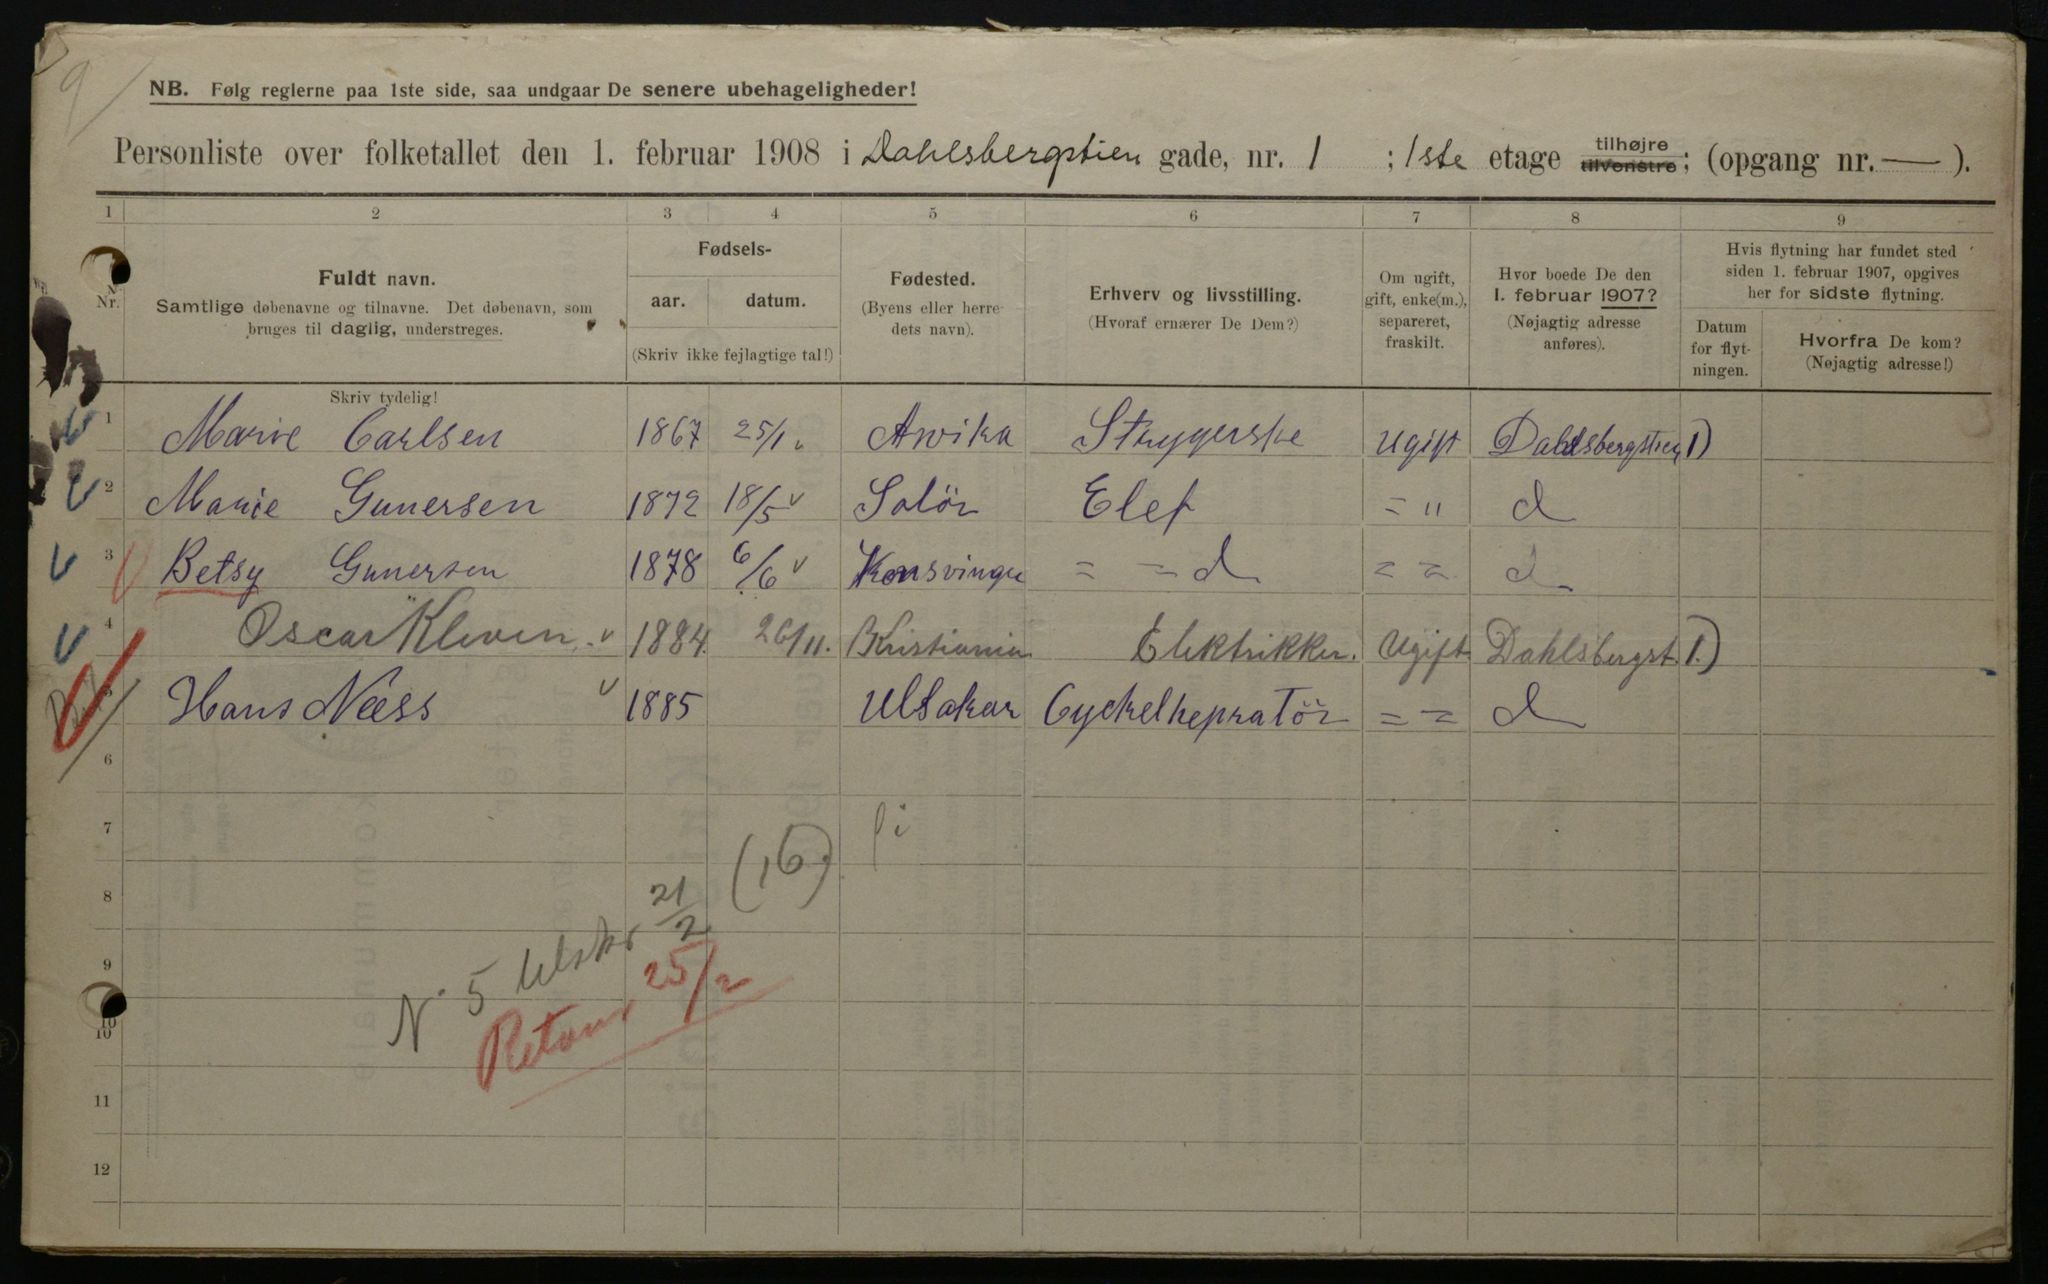 9
NB. Følg reglerne paa 1ste side, saa undgaar De senere ubehageligheder!
Personliste over folketallet den 1. februar 1908 i Dahlsbergstien gade, nr. 1 ; 1ste etage tilhøjre tilvenstre; (opgang nr. — ).
1 2 3 4 5 6 7 8 9
Nr.
Fuldt navn.
Samtlige døbenavne og tilnavne. Det døbenavn, som
bruges til daglig, understreges.
Fødsels-
aar. datum.
(Skriv ikke fejlagtige tal!)
Fødested.
(Byens eller herre-
dets navn).
Erhverv og livsstilling.
(Hvoraf ernærer De Dem?)
Om ugift,
gift, enke(m.),
separeret,
fraskilt.
Hvor boede De den
1. februar 1907?
(Nøjagtig adresse
anføres).
Hvis flytning har fundet sted
siden 1. februar 1907, opgives
her for sidste flytning.
Datum
for flyt-
ningen.
Hvorfra De kom?
(Nøjagtig adresse!)
Skriv tydelig!
1 Marie Carlsen 1867 25/1 Arvika Strygerske Ugift Dahlsbergstien 1)
2 Marie Gunersen 1872 18/5 Solör Elef = " d
3 Betsy Gunersen 1878 6/6 Konsvinger = = d = = d
4 Oscar Kleven 1884 26/11. Kristiania Elektrikker. Ugift Dahlsbergst. 1.)
5 Hans Næss 1885 Ulsakar Cyckelrepratör = = d
6
7
(16)
8
N 5 Ulskr 21/2
9
Retour 25/2
10
11
12